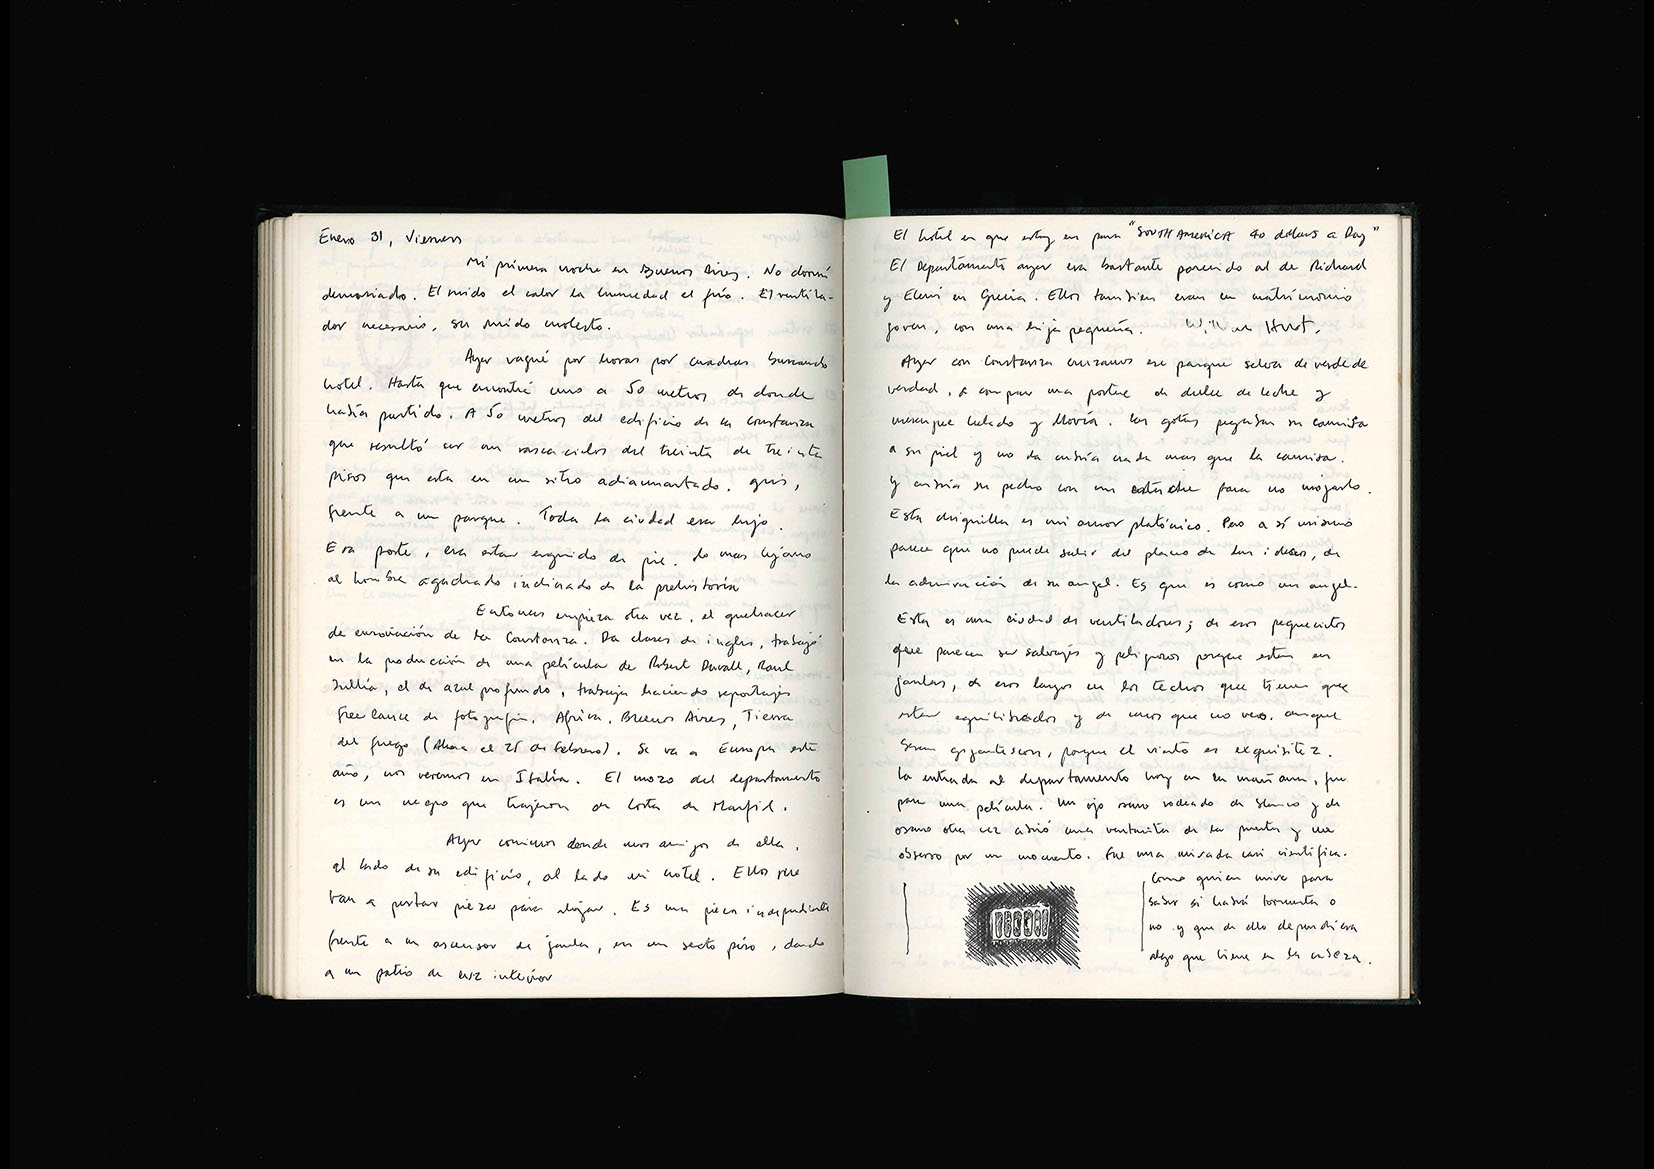 Enero 31, Viernes
Mi primera noche en Buenos Aires. No dormí
demasiado. El ruido el calor la humedad el frío. El ventila-
dor necesario, su ruido molesto.
Ayer vagué por horas por cuadras buscando
hotel. Hasta que encontré uno a 50 metros de donde
había partido. A 50 metros del edificio de la Constanza
que resultó ser un rascacielos del treinta de treinta
pisos que esta en un sitio adiamantado. gris,
frente a un parque. Toda la ciudad era lujo.
Era porte, era estar erguido de pie. Lo mas lejano
al hombre agachado inclinado de la prehistoria
Entonces empieza otra vez, el quehacer
de enumeración de la Constanza. Da clases de ingles, trabajó
en la producción de una película de Robert Duvall, Raul
Jullia, el de azul profundo, trabaja haciendo reportajes
free lance de fotografia. Africa, Buenos Aires, Tierra
del fuego (Ahora el 25 de febrero). Se va a Europa este
año, nos veremos en Italia. El mozo del departamento
es un negro que trajeron de Costa de Marfil.
Ayer comimos donde unos amigos de ella,
al lado de su edificio, al lado mi hotel. Ellos me
van a prestar pieza para alojar. Es una pieza independiente
frente a un ascensor de jaula, en un sexto piso, dando
a un patio de luz interior
El hotel en que estoy es para "SOUTH AMERICA 40 dollars a Day"
El Departamento ayer era bastante parecido al de Richard
y Eleni en Grecia. Ellos tambien eran un matrimonio
joven, con una hija pequeña. William Hurt.
Ayer con Constanza cruzamos ese parque selva de verde de
verdad, a comprar una postre de dulce de leche y
merengue helado y llovía. Las gotas pegaban su camisa
a su piel y no la cubría nada mas que la camisa.
y cubría su pecho con un estuche para no mojarlo.
Esta chiquilla es mi amor platónico. Pero a sí mismo
parece que no puede salir del plano de las ideas, de
la admiración de su angel. Es que es como un angel.
Esta es una ciudad de ventiladores; de esos pequeñitos
que parecen ser salvajes y peligrosos porque estan en
jaulas, de esos largos en los techos que tienen que
estar equilibrados y de unos que no veo, aunque
seran gigantescos, porque el viento es exquisitez.
La entrada al departamento hoy en la mañana, fue
para una película. Un ojo oscuro rodeado de blanco y de
oscuro otra vez abrió una ventanita de la puerta y me
observo por un momento. Fue una mirada casi cientifica.
Como quien mira para
saber si habrá tormenta o
no y que de ello dependiera
algo que tiene en la cabeza.